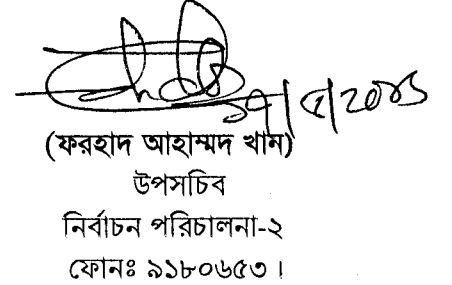 (ফরহাদ আহাম্মদ খান)
উপসচিব
নির্বাচন পরিচালনা-২
ফোনঃ ৯১৮০৬৫৩।